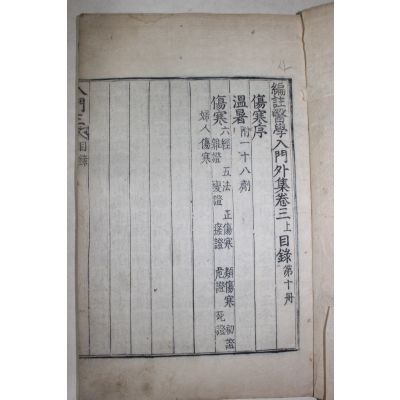 編註醫學入門外集卷三上目錄 第十冊
傷寒序
溫暑 附一十八劑
傷寒 六經 五法 正傷寒 類傷寒 初證
雜證 變證 瘥證 危證 死證
婦人傷寒
入門三 目錄